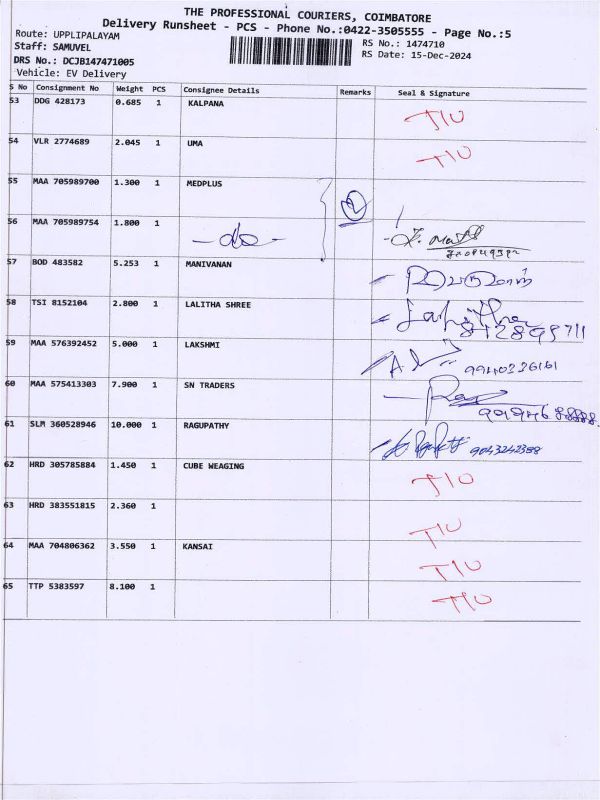 THE PROFESSIONAL COURIERS, COIMBATORE
Delivery Runsheet - PCS - Phone No.:0422-3505555 - Page No.:5
Route: UPPLIPALAYAM
Staff: SAMUVEL
DRS No.: DCJB147471005
Vehicle: EV Delivery
RS No.: 1474710
RS Date: 15-Dec-2024
S No Consignment No Weight PCS Consignee Details Remarks Seal & Signature
53 DDG 428173 0.685 1 KALPANA
54 VLR 2774689 2.045 1 UMA
55 MAA 705989700 1.300 1 MEDPLUS
56 MAA 705989754 1.800 1 - do - 2
57 BOD 483582 5.253 1 MANIVANAN
58 TSI 8152104 2.800 1 LALITHA SHREE
59 MAA 576392452 5.000 1 LAKSHMI
60 MAA 575413303 7.900 1 SN TRADERS
61 SLM 360528946 10.000 1 RAGUPATHY 9043242388
62 HRD 305785884 1.450 1 CUBE WEAGING
63 HRD 383551815 2.360 1
64 MAA 704806362 3.550 1 KANSAI
65 TTP 5383597 8.100 1